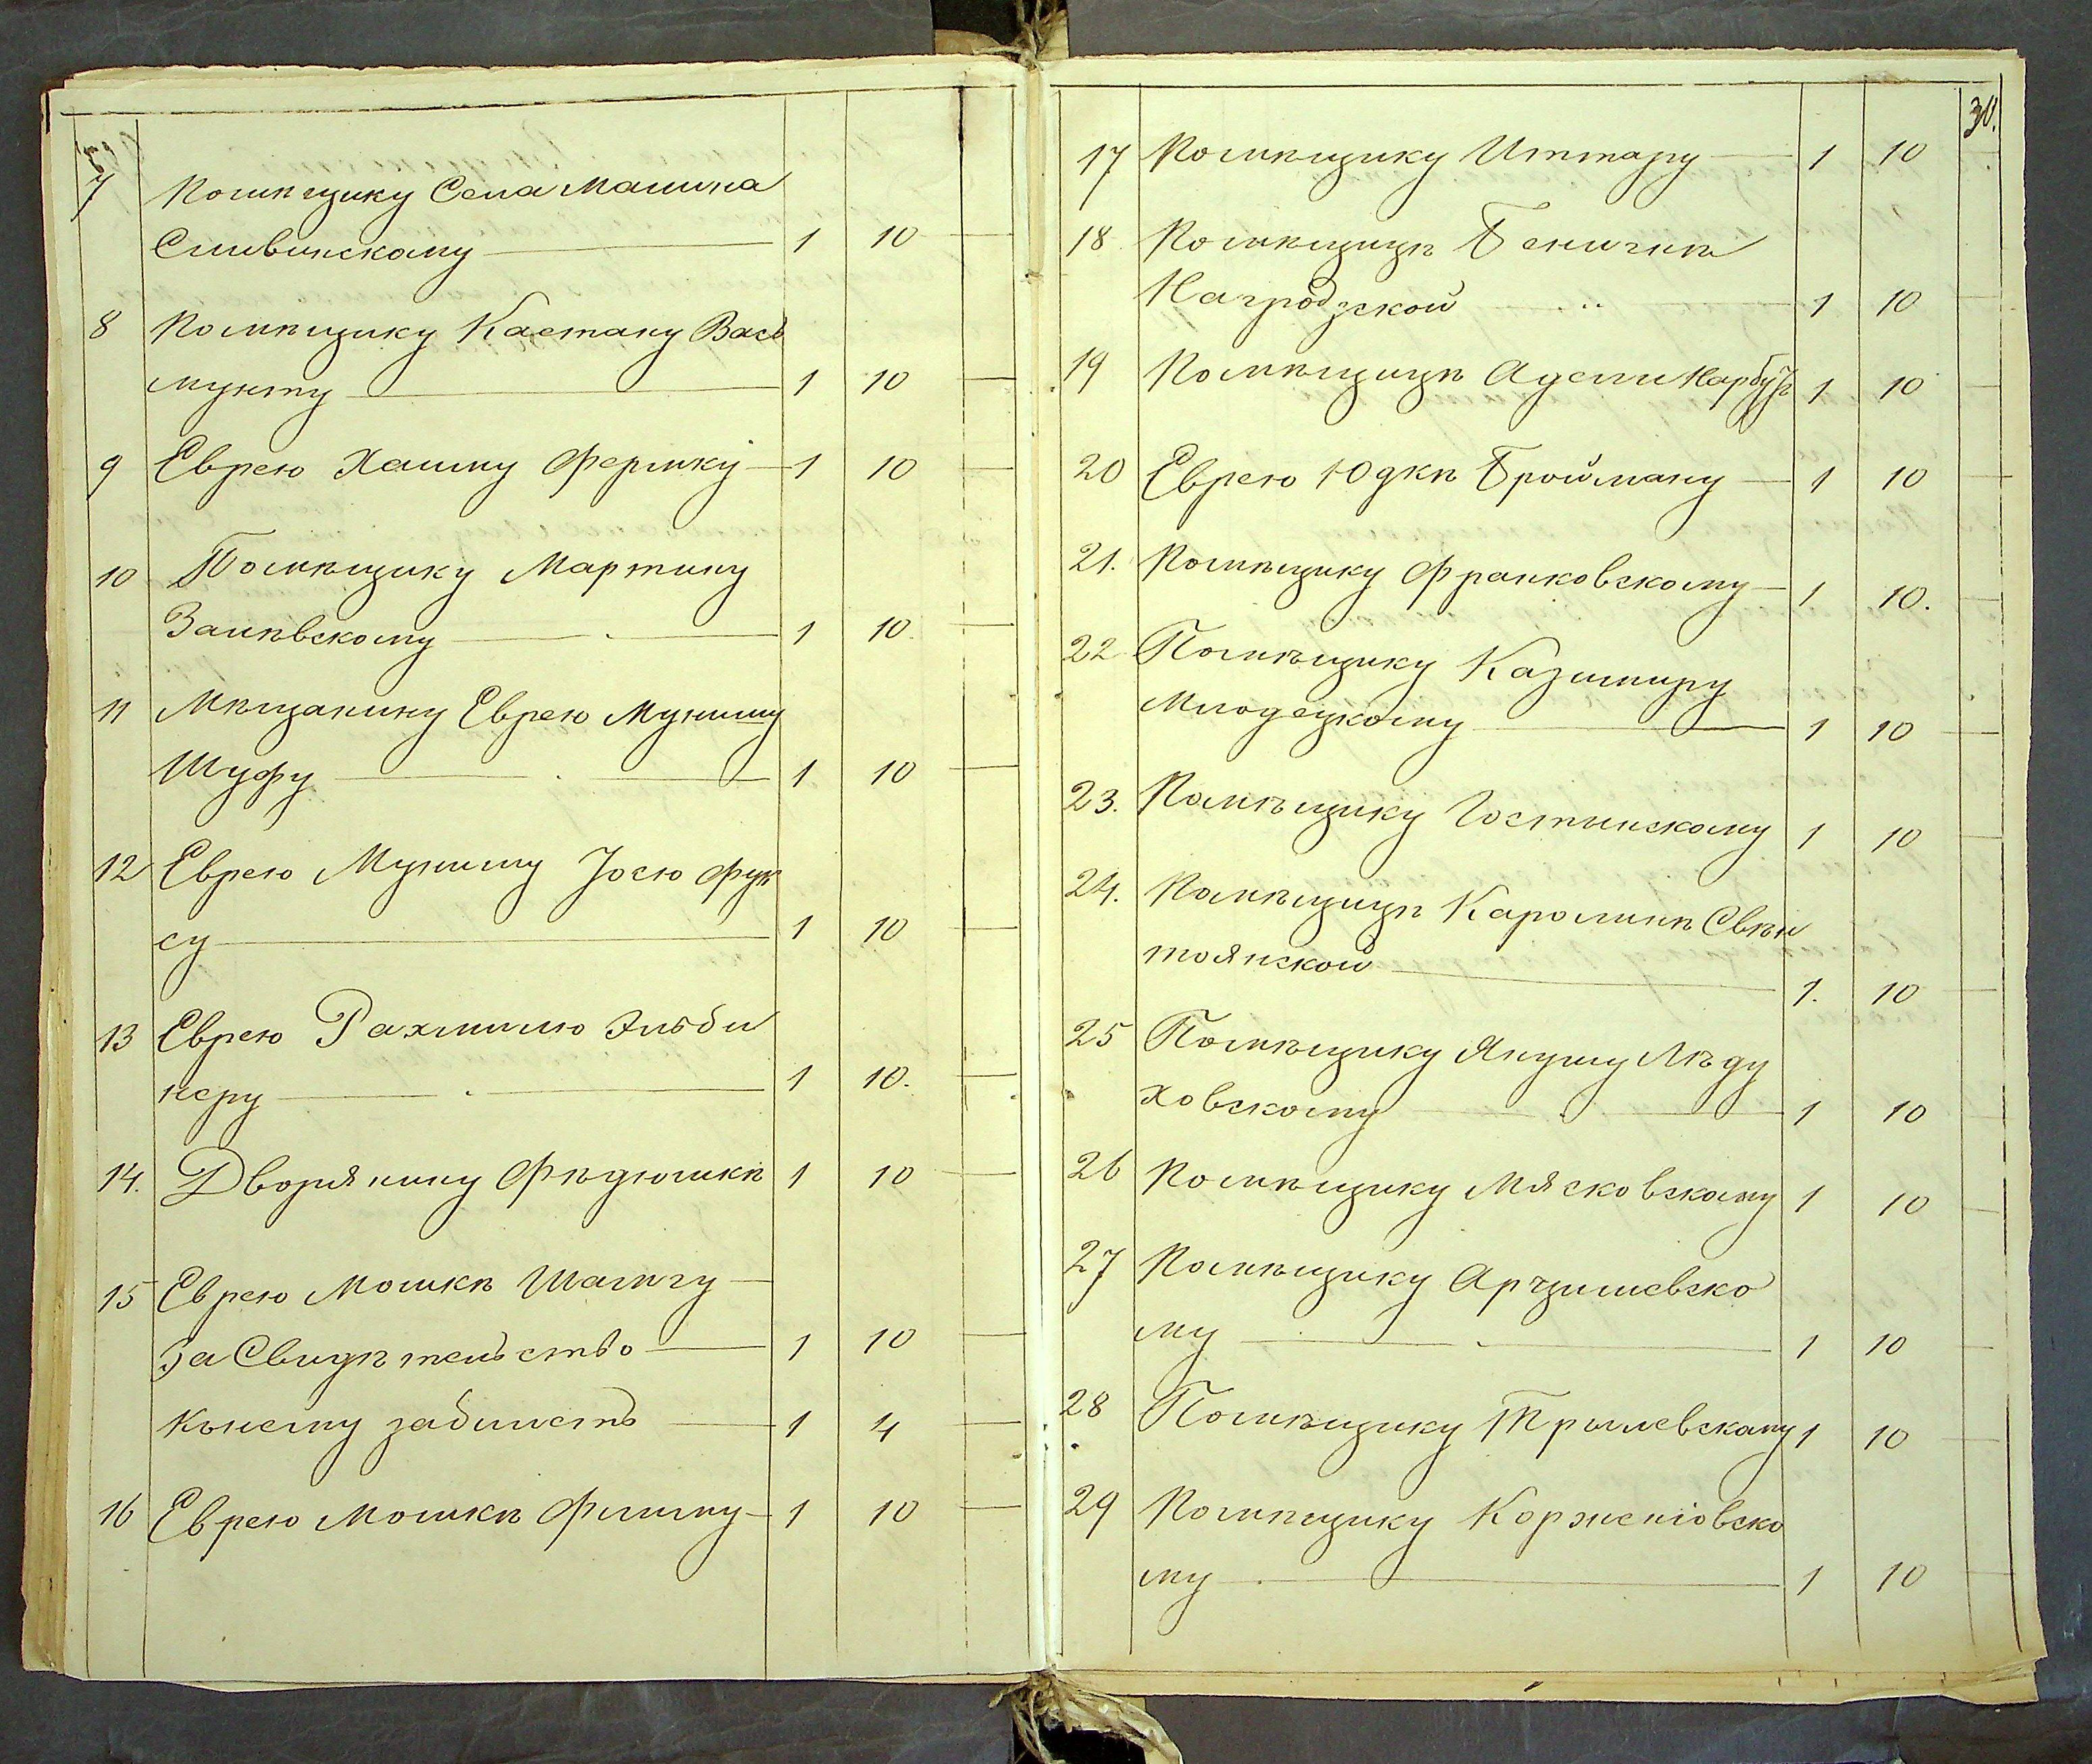 7 Помѣщику Села Малина
Сливинскому 1 10
8 Помѣщику Каетану Вась
мунту 1 10
9 Еврею Хаиму Фермку 1 10
10 Помѣщику Мартину
Залѣвскому 1 10
11 Мѣщанину Еврею Мунишу
Шуфу 1 10
12 Еврею Мунишу Іосю Фук
су 1 10
13 Еврею Рахмилю Эльби
неру 1 10.
14. Дворянину Фѣдюшкѣ 1 10
15 Еврею Мошкѣ
За Свидѣтельство 1 10
1 4
16 Еврею Мошкѣ Фишму 1 10
30.
17 Помѣщику Иттару 1 10
18 Помѣщицѣ Беничкѣ
Нагродзской 1 10
19 Помѣщицѣ Адели Нарбутъ 1 10
20 Еврею Юдкѣ Бройману 1 10
21. Помѣщику Франковскому 1 10.
22 Помѣщику Казимиру
Млодецкому 1 10
23. Помѣщику Гостынскому 1 10
24. Помѣщицѣ Каролинѣ Свѣн
тоянской 1. 10
25 Помѣщику Янушу Лѣду
ховскому 1 10
26 Помѣщику Мясковскому 1 10
27 Помѣщику Арцишевско
му 1 10
28 Помѣщику Трылевскому 1 10
29 Помѣщику Корженіовско
му 1 10